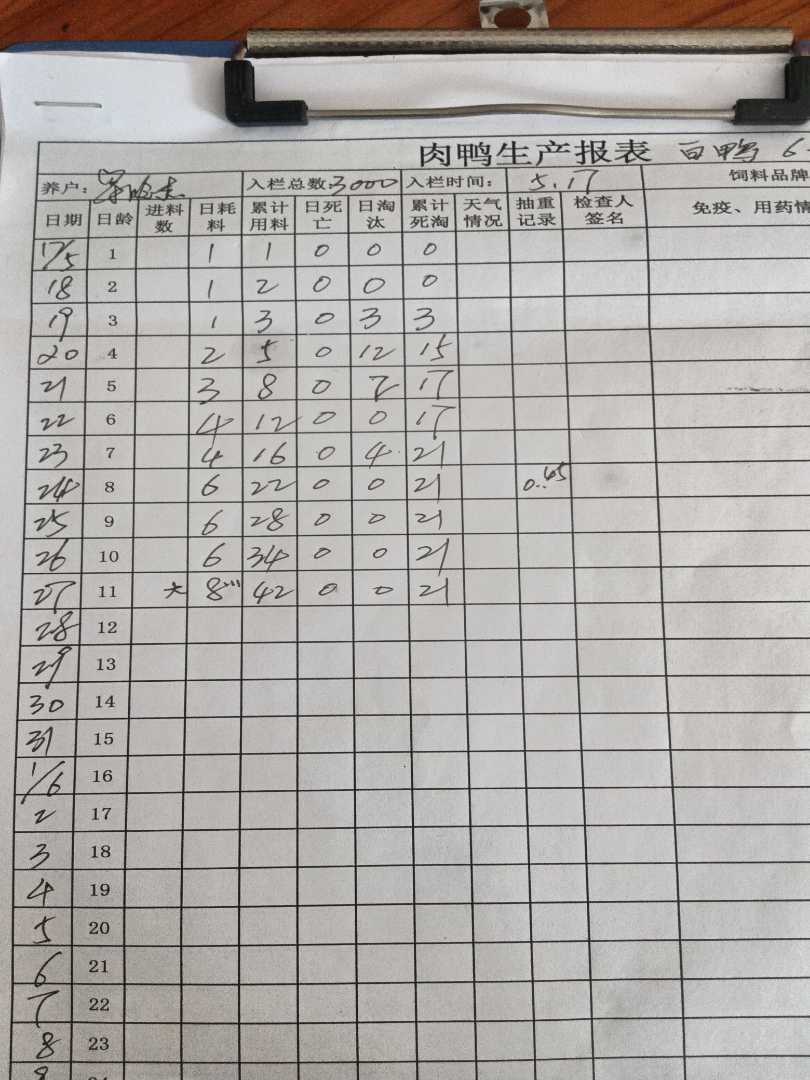 肉鸭生产报表 白鸭 6
养户： 入栏总数：3000 入栏时间： 5.17 饲料品牌
日期 日龄 进料数 日耗料 累计用料 日死亡 日淘汰 累计死淘 天气情况 抽重记录 检查人签名 免疫、用药情
17/5 1 1 1 0 0 0
18 2 1 2 0 0 0
19 3 1 3 0 3 3
20 4 2 5 0 12 15
21 5 3 8 0 2 17
22 6 4 12 0 0 17
23 7 4 16 0 4 21
24 8 6 22 0 0 21
25 9 6 28 0 0 21
26 10 6 34 0 0 21
27 11 大 8 42 0 0 21
28 12
29 13
30 14
31 15
1/6 16
2 17
3 18
4 19
5 20
6 21
7 22
8 23